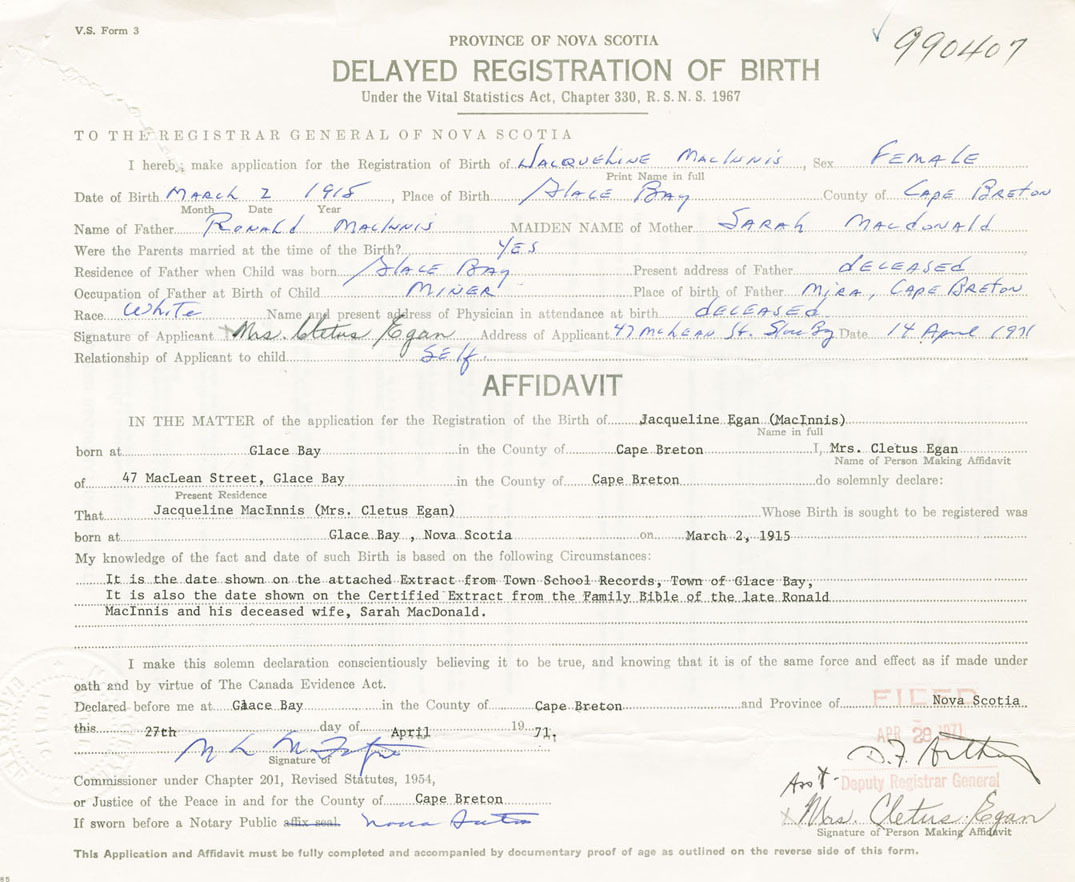 V.S. Form 3
990407
PROVINCE OF NOVA SCOTIA
DELAYED REGISTRATION OF BIRTH
Under the Vital Statistics Act, Chapter 330, R. S. N. S. 1967
TO THE REGISTRAR GENERAL OF NOVA SCOTIA
I hereby make application for the Registration of Birth of Jacqueline MacInnis, Sex Female
Print Name in full
Date of Birth March 2 1915, Place of Birth Glace Bay County of Cape Breton
Month Date Year
Name of Father Ronald MacInnis MAIDEN NAME of Mother Sarah MacDonald
Were the Parents married at the time of the Birth? Yes
Residence of Father when Child was born Glace Bay Present address of Father deceased
Occupation of Father at Birth of Child Miner Place of birth of Father Mira, Cape Breton
Race White Name and present address of Physician in attendance at birth deceased
Signature of Applicant Mrs. Cletus Egan Address of Applicant 47 McLean St. Date 14 April 1971
Relationship of Applicant to child Self.
AFFIDAVIT
IN THE MATTER of the application for the Registration of the Birth of Jacqueline Egan (MacInnis)
Name in full
born at Glace Bay in the County of Cape Breton I, Mrs. Cletus Egan
Name of Person Making Affidavit
of 47 MacLean Street, Glace Bay in the County of Cape Breton do solemnly declare:
Present Residence
That Jacqueline MacInnis (Mrs. Cletus Egan) Whose Birth is sought to be registered was
born at Glace Bay , Nova Scotia on March 2, 1915
My knowledge of the fact and date of such Birth is based on the following Circumstances:
It is the date shown on the attached Extract from Town School Records, Town of Glace Bay,
It is also the date shown on the Certified Extract from the Family Bible of the late Ronald
MacInnis and his deceased wife, Sarah MacDonald.
I make this solemn declaration conscientiously believing it to be true, and knowing that it is of the same force and effect as if made under
oath and by virtue of The Canada Evidence Act.
Declared before me at Glace Bay in the County of Cape Breton and Province of Nova Scotia
FILED
this 27th day of April 1971.
APR 28 1971
Signature of
D.F. Arthur
Commissioner under Chapter 201, Revised Statutes, 1954,
Ass't Deputy Registrar General
or Justice of the Peace in and for the County of Cape Breton
Mrs. Cletus Egan
If sworn before a Notary Public affix seal. Nova Scotia
Signature of Person Making Affidavit
This Application and Affidavit must be fully completed and accompanied by documentary proof of age as outlined on the reverse side of this form.
85